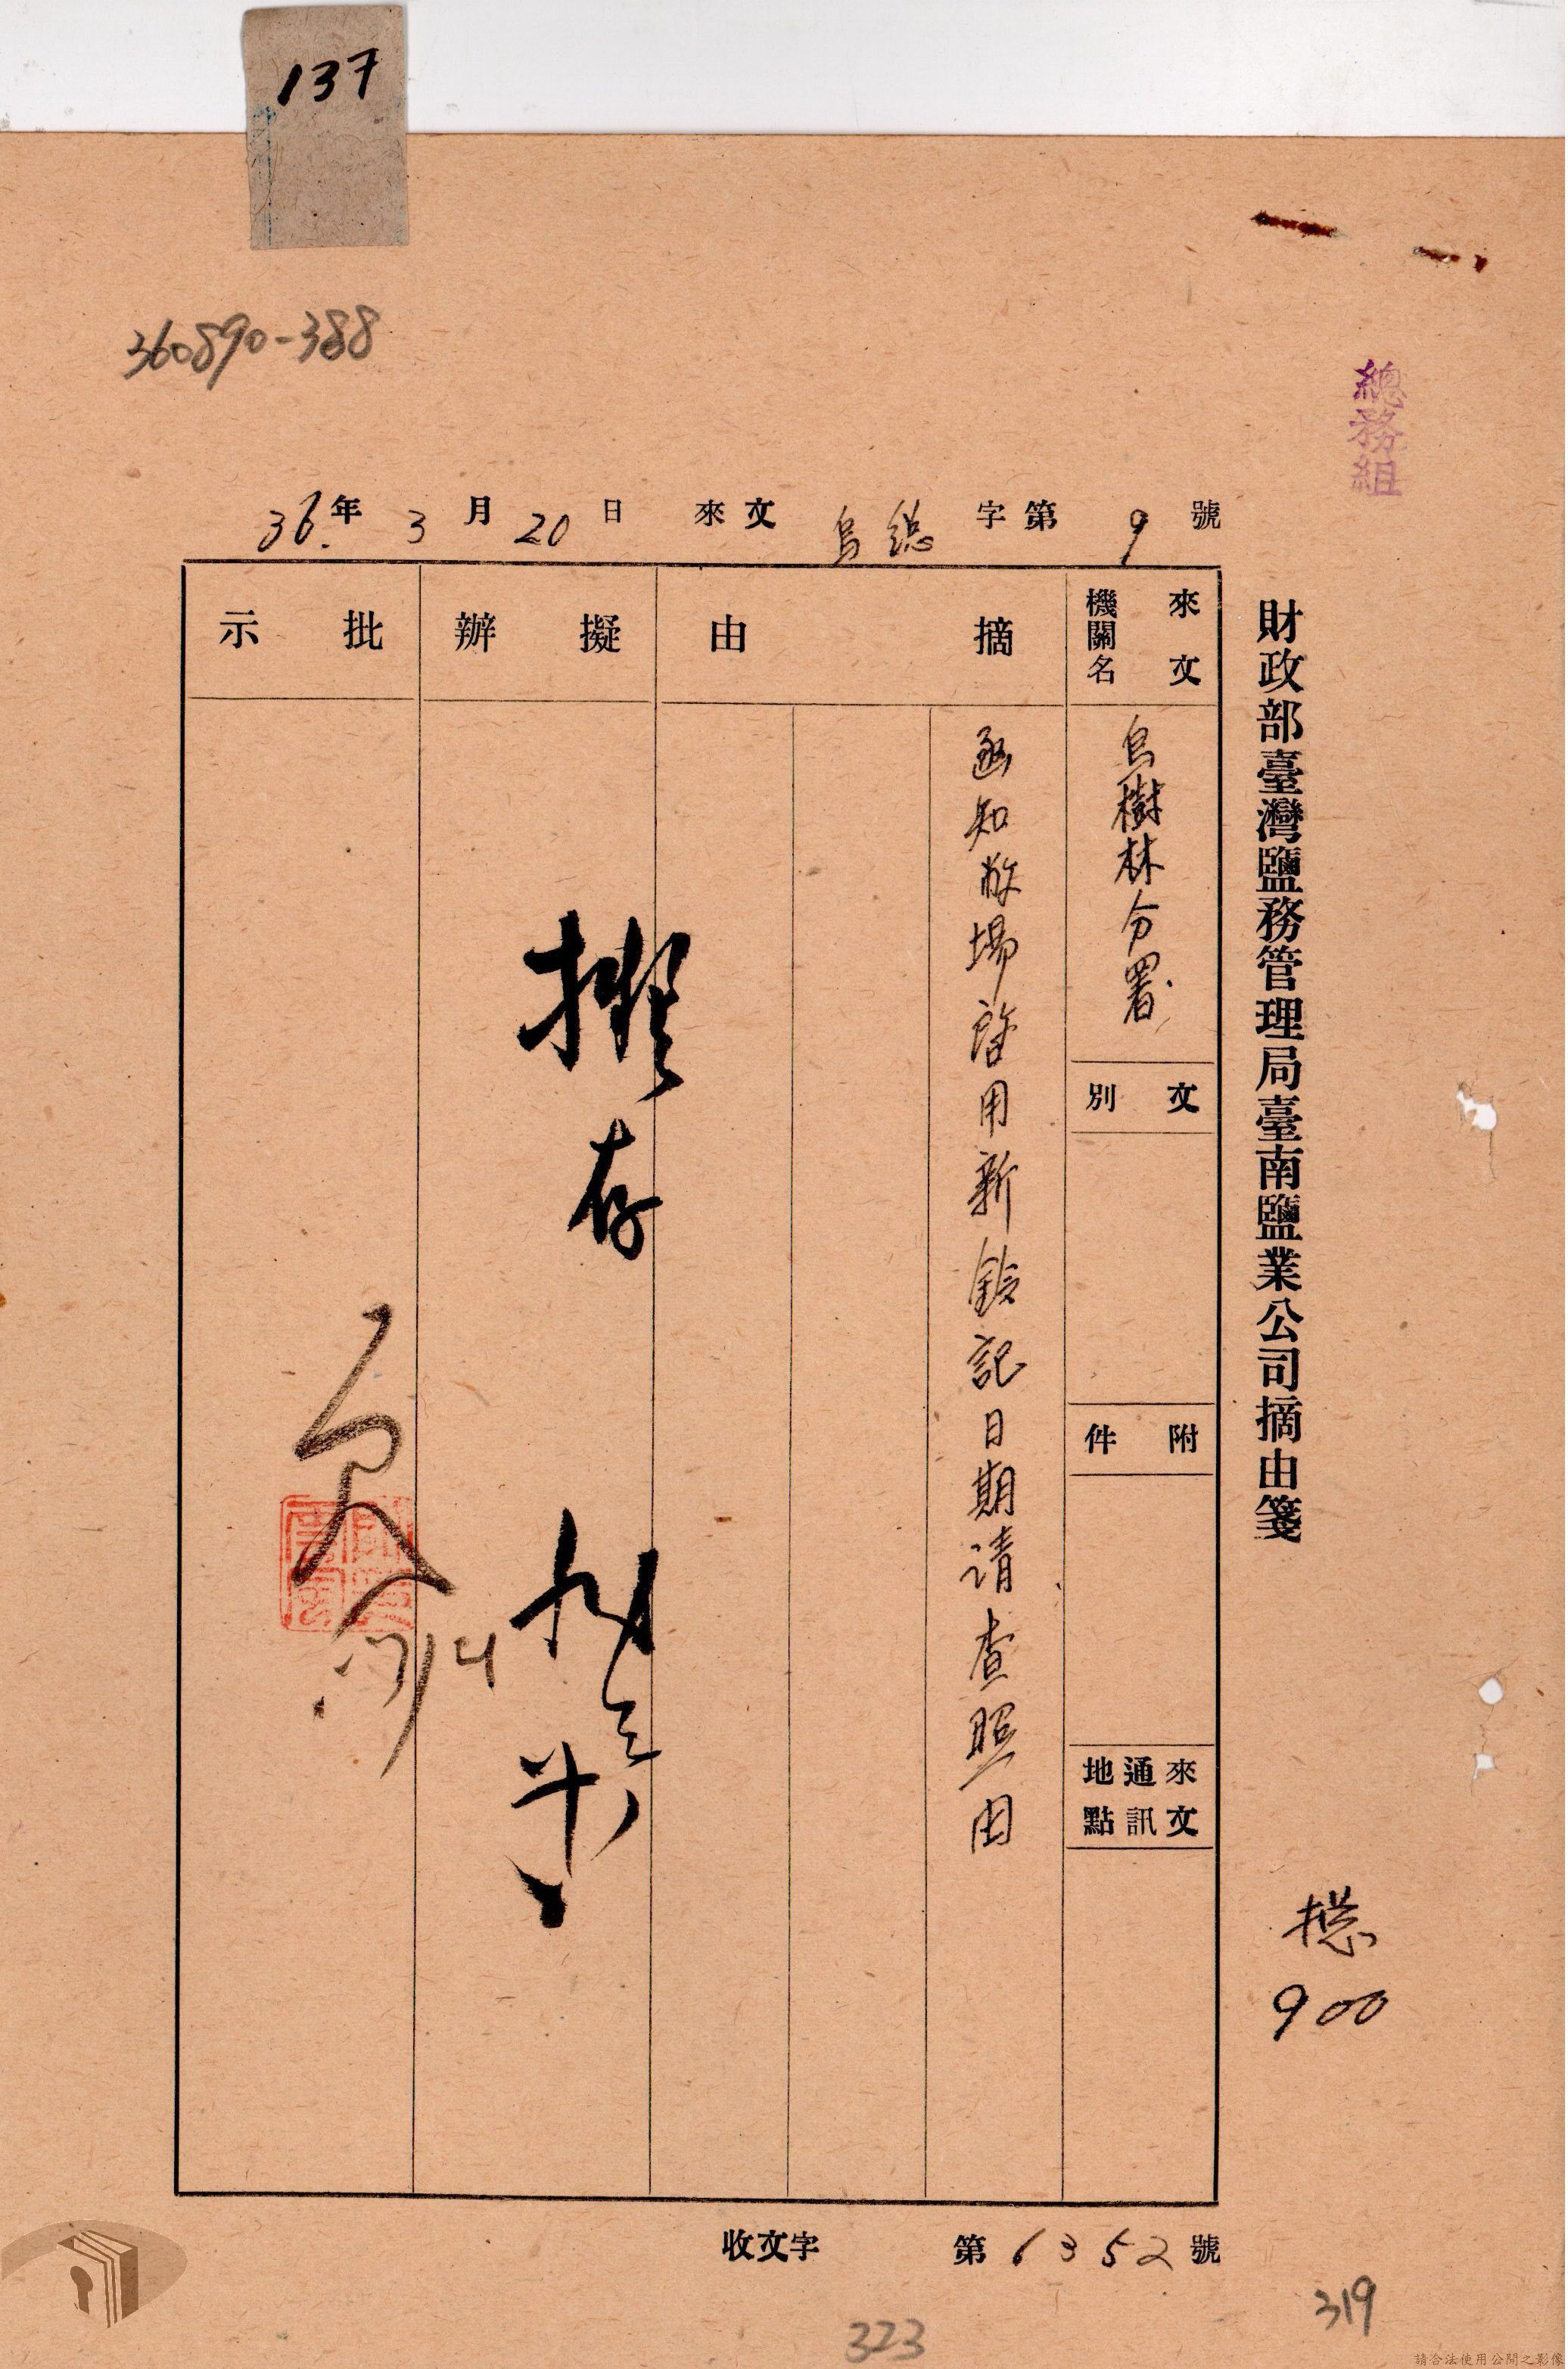 137
360890-388
總務組
財政部臺灣鹽務管理局臺南鹽業公司摘由箋
36.年3月20日 來文 烏總字第9號
來文機關名
烏樹林分署
文別
附件
來文通訊地點
摘由
函知敝場啓用新鈐記日期請查照由
擬辦
擬存
批示
總
900
收文字 第6352號
319
323
請合法使用公開之影像